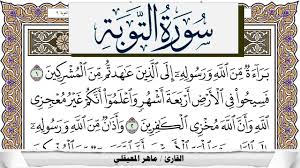 سُورَةُ التَّوْبَةِ
بَرَآءَةٌ مِّنَ ٱللَّهِ وَرَسُولِهِۦٓ إِلَى ٱلَّذِينَ عَٰهَدتُّم مِّنَ ٱلْمُشْرِكِينَ ١
فَسِيحُوا۟ فِى ٱلْأَرْضِ أَرْبَعَةَ أَشْهُرٍ وَٱعْلَمُوٓا۟ أَنَّكُمْ غَيْرُ مُعْجِزِى
ٱللَّهِ وَأَنَّ ٱللَّهَ مُخْزِى ٱلْكَٰفِرِينَ ٢ وَأَذَٰنٌ مِّنَ ٱللَّهِ وَرَسُولِهِۦٓ
القارئ / ماهر المعيقلي